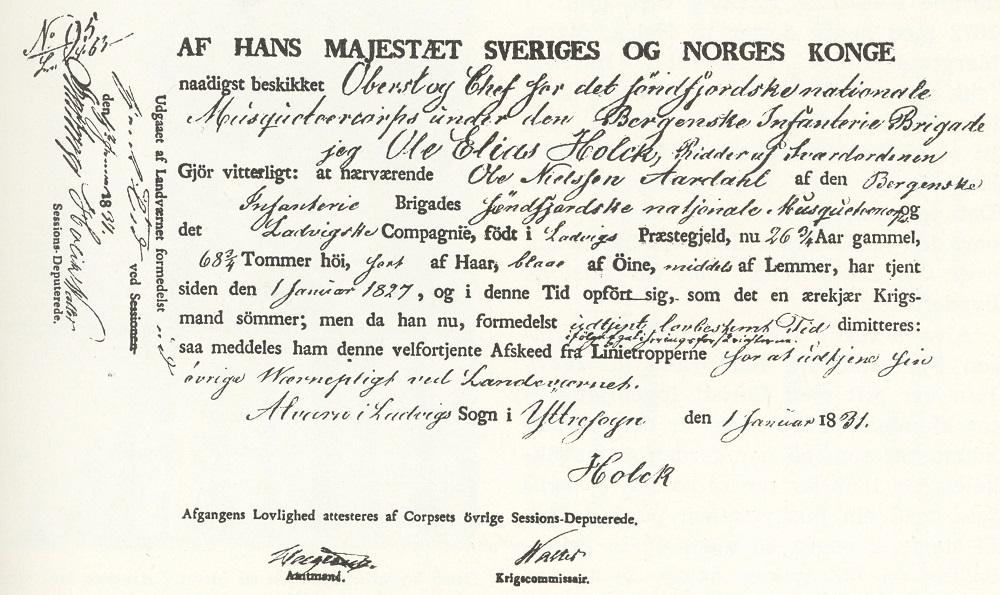 No 5
AF HANS MAJESTÆT SVERIGES OG NORGES KONGE
naadigst beskikket Oberst og Chef for det söndfjordske nationale
Musqueteercorps under den Bergenske Infanterie Brigade
jeg Ole Elias Holck, Ridder af Sværdordenen
Gjör vitterligt: at nærværende Ole Nielssön Aardahl af den Bergenske
Infanterie Brigades söndfjordske nationale Musqueteercorps og
det Ladvigske Compagnie, födt i Ladvigs Præstegjeld, nu 26 3/4 Aar gammel,
68 3/4 Tommer höi, sort af Haar, blaae af Öine, middels af Lemmer, har tjent
siden den 1 Januar 1827, og i denne Tid opfört sig, som det en ærekjær Krigs-
mand sömmer; men da han nu, formedelst udtjent lovbestemt Tid dimitteres:
saa meddeles ham denne velfortjente Afskeed fra Linietropperne for at udtjene sin
övrige Værnepligt ved Landeværnet.
i Ladvigs Sogn i Yttresogn den 1 Januar 1831.
Holck
Afgangens Lovlighed attesteres af Corpsets övrige Sessions-Deputerede.
Amtmand.
Krigscommissair.
Udgaaet af Landværnet formedelst
ved Sessionen
den 18
Sessions-Deputerede.